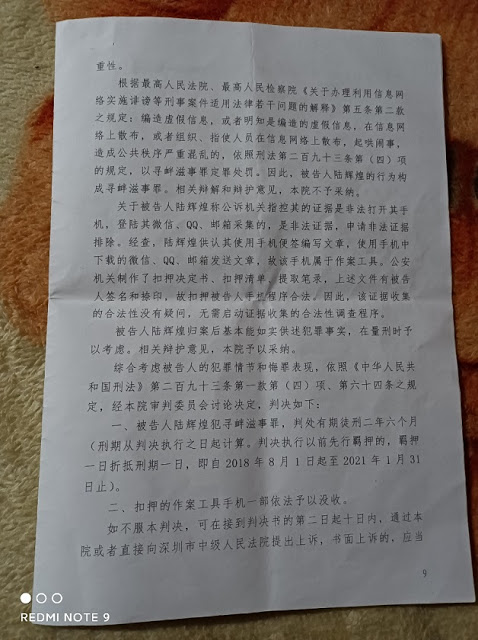 重性。
根据最高人民法院、最高人民检察院《关于办理利用信息网
络实施诽谤等刑事案件适用法律若干问题的解释》第五条第二款
之规定：编造虚假信息，或者明知是编造的虚假信息，在信息网
络上散布，或者组织、指使人员在信息网络上散布，起哄闹事，
造成公共秩序严重混乱的，依照刑法第二百九十三条第（四）项
的规定，以寻衅滋事罪定罪处罚。因此，被告人陆辉煌的行为构
成寻衅滋事罪。相关辩解和辩护意见，本院不予采纳。
关于被告人陆辉煌称公诉机关指控其的证据是非法打开其手
机，登陆其微信、QQ、邮箱采集的，是非法证据，申请非法证据
排除。经查，陆辉煌供认其使用手机便签编写文章，使用手机中
下载的微信、QQ、邮箱发送文章，故该手机属于作案工具。公安
机关制作了扣押决定书、扣押清单、提取笔录，上述文件有被告
人签名和捺印，故扣押被告人手机程序合法。因此，该证据收集
的合法性没有疑问，无需启动证据收集的合法性调查程序。
被告人陆辉煌归案后基本能如实供述犯罪事实，在量刑时予
以考虑。相关辩护意见，本院予以采纳。
综合考虑被告人的犯罪情节和悔罪表现，依照《中华人民共
和国刑法》第二百九十三条第一款第（四）项、第六十四条之规
定，经本院审判委员会讨论决定，判决如下：
一、被告人陆辉煌犯寻衅滋事罪，判处有期徒刑二年六个月
（刑期从判决执行之日起计算。判决执行以前先行羁押的，羁押
一日折抵刑期一日，即自 2018 年 8 月 1 日起至 2021 年 1 月 31
日止）。
二、扣押的作案工具手机一部依法予以没收。
如不服本判决，可在接到判决书的第二日起十日内，通过本
院或者直接向深圳市中级人民法院提出上诉，书面上诉的，应当
9
REDMI NOTE 9